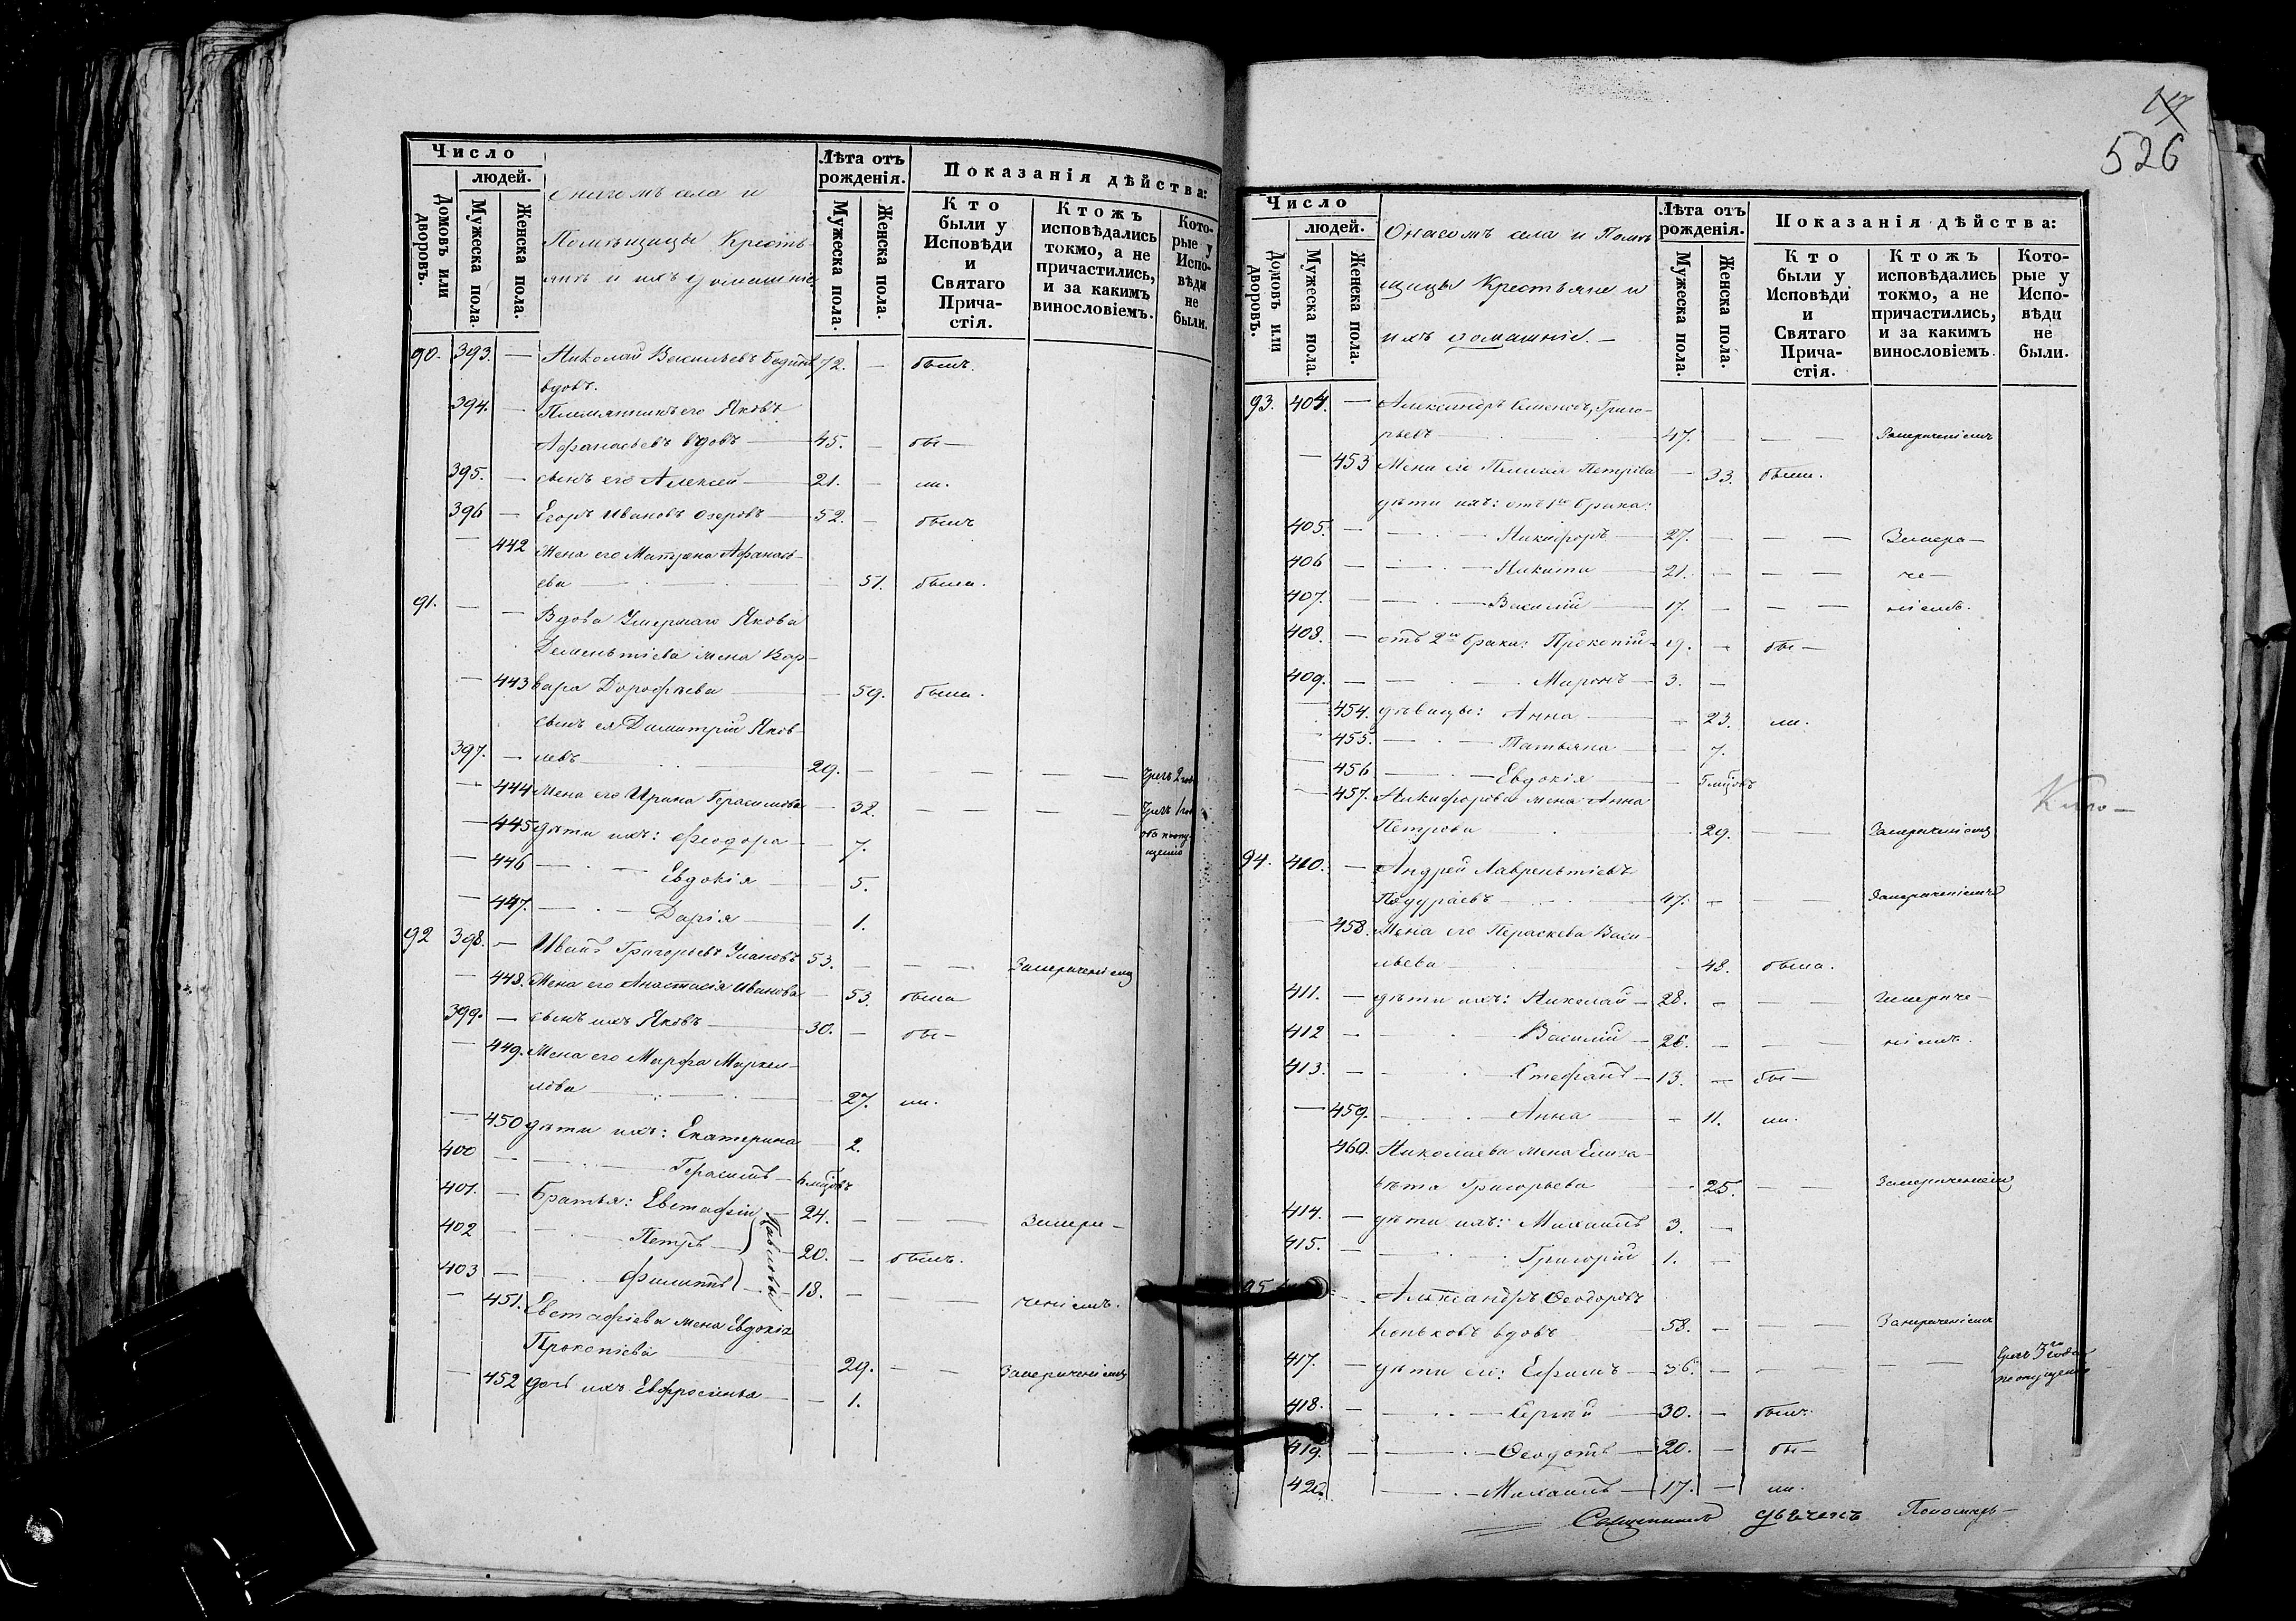 Число
людей.
Домовъ или дворовъ.
Мужеска пола.
Женска пола.
села и
Помѣщицы Кресть-
янѣ и ихъ домашніе
Лѣта отъ рожденія.
Мужеска пола.
Женска пола.
Показанія дѣйства:
Кто были у Исповѣди и Святаго Прича-стія.
Ктожъ исповѣдались токмо, а не причастились, и за какимъ винословіемъ.
Кото-рые у Испо-вѣди не были.
90. 393. — Николай Васильевъ 72. — былъ.
вдовъ.
394. — Племянникъ его Яковъ
Афанасьевъ вдовъ — 45. — бы—
395. — сынъ его Алексей — 21. — ли.
396 — Егоръ Ивановъ Озеровъ — 52. — былъ
— 442 Жена его Матрена Афанась-
ева — 51. была.
91. — — Вдова Умершаго Якова
Дементіева жена Вар-
— 443 вара Дорофѣева — 59. была.
сынъ ея Димитрій Яков-
397. — левъ — 29. — — — —
— 444 Жена его Ирина Герасимова — 32. — — —
— 445 дѣти ихъ: Феодора — 7.
— 446 — Евдокія — 5.
— 447. — Дарія — 1.
92 398. — Иванъ Григорьевъ Улановъ 53. — — — Замереченіемъ
— 448. Жена его Анастасія Иванова — 53. была
399. — сынъ ихъ Яковъ — 30. — бы—
— 449. Жена его Марфа Маркел-
лова — 27. ли.
— 450 дѣти ихъ: Екатерина — 2.
400 — — Герасимъ —
401. — Братья: Евстафій — 24. — —
402 — Петръ — 20. — былъ.
403 — — Филиппъ — 18. — — — ченіемъ.
Павловы
— 451. Евстафіева жена Евдокія
Прокопіева — 29. — —
— 452 дочь ихъ Евфросинья — 1.
526
Число
людей.
Домовъ или дворовъ.
Мужеска пола.
Женска пола.
села и Помѣ-
щицы Крестьяне и
ихъ домашніе. —
Лѣта отъ рожденія.
Мужеска пола.
Женска пола.
Показанія дѣйства:
Кто были у Исповѣди и Святаго Прича-стія.
Ктожъ исповѣдались токмо, а не причастились, и за какимъ винословіемъ.
Кото-рые у Испо-вѣди не были.
93. 404. — Александръ Семеновъ, Григо-
рьевъ — 47. — — —
— 453 Жена его Пелагея Петрова — 33. была.
дѣти ихъ: отъ 1го брака:
405. — — Никифоръ — 27. — — —
406 — Никита — 21. — — — че—
407. — — Василій — 17. — — — ніемъ.
408. — отъ 2го брака: Прокопій — 19. — бы—
409. — — Миронъ — 3. —
— 454. дѣвицы: Анна — 23. ли.
— 455. — Татьяна — 7.
— 456 — Евдокія — 5 мѣсцовъ
— 457. Никифорова жена Анна
Петрова — 29. — —
94. 410. — Андрей Лаврентіевъ
Подураевъ — 47. — — —
— 458. Жена его Параскева Васи-
льева — 48. была.
411. — дѣти ихъ: Николай — 28. — — —
412 — — Василій — 26. — — — ніемъ.
413. — — Стефанъ — 13. — бы—
— 459. — Анна — 11. ли.
460. Николаева жена Елиза-
вѣта Григорьева — 25. — —
414. — дѣти ихъ: Михаилъ 3. —
415. — — Григорій 1. —
95. Александръ Ѳеодоровъ
Коньковъ вдовъ 58. — — —
417. — дѣти его: Ефимъ — 36. — — — —
418. — — Сергѣй — 30. — былъ.
419. — — Ѳеодотъ — 20. — бы—
420. — Михаилъ — 17. — ли.
Священникъ Пономарь —